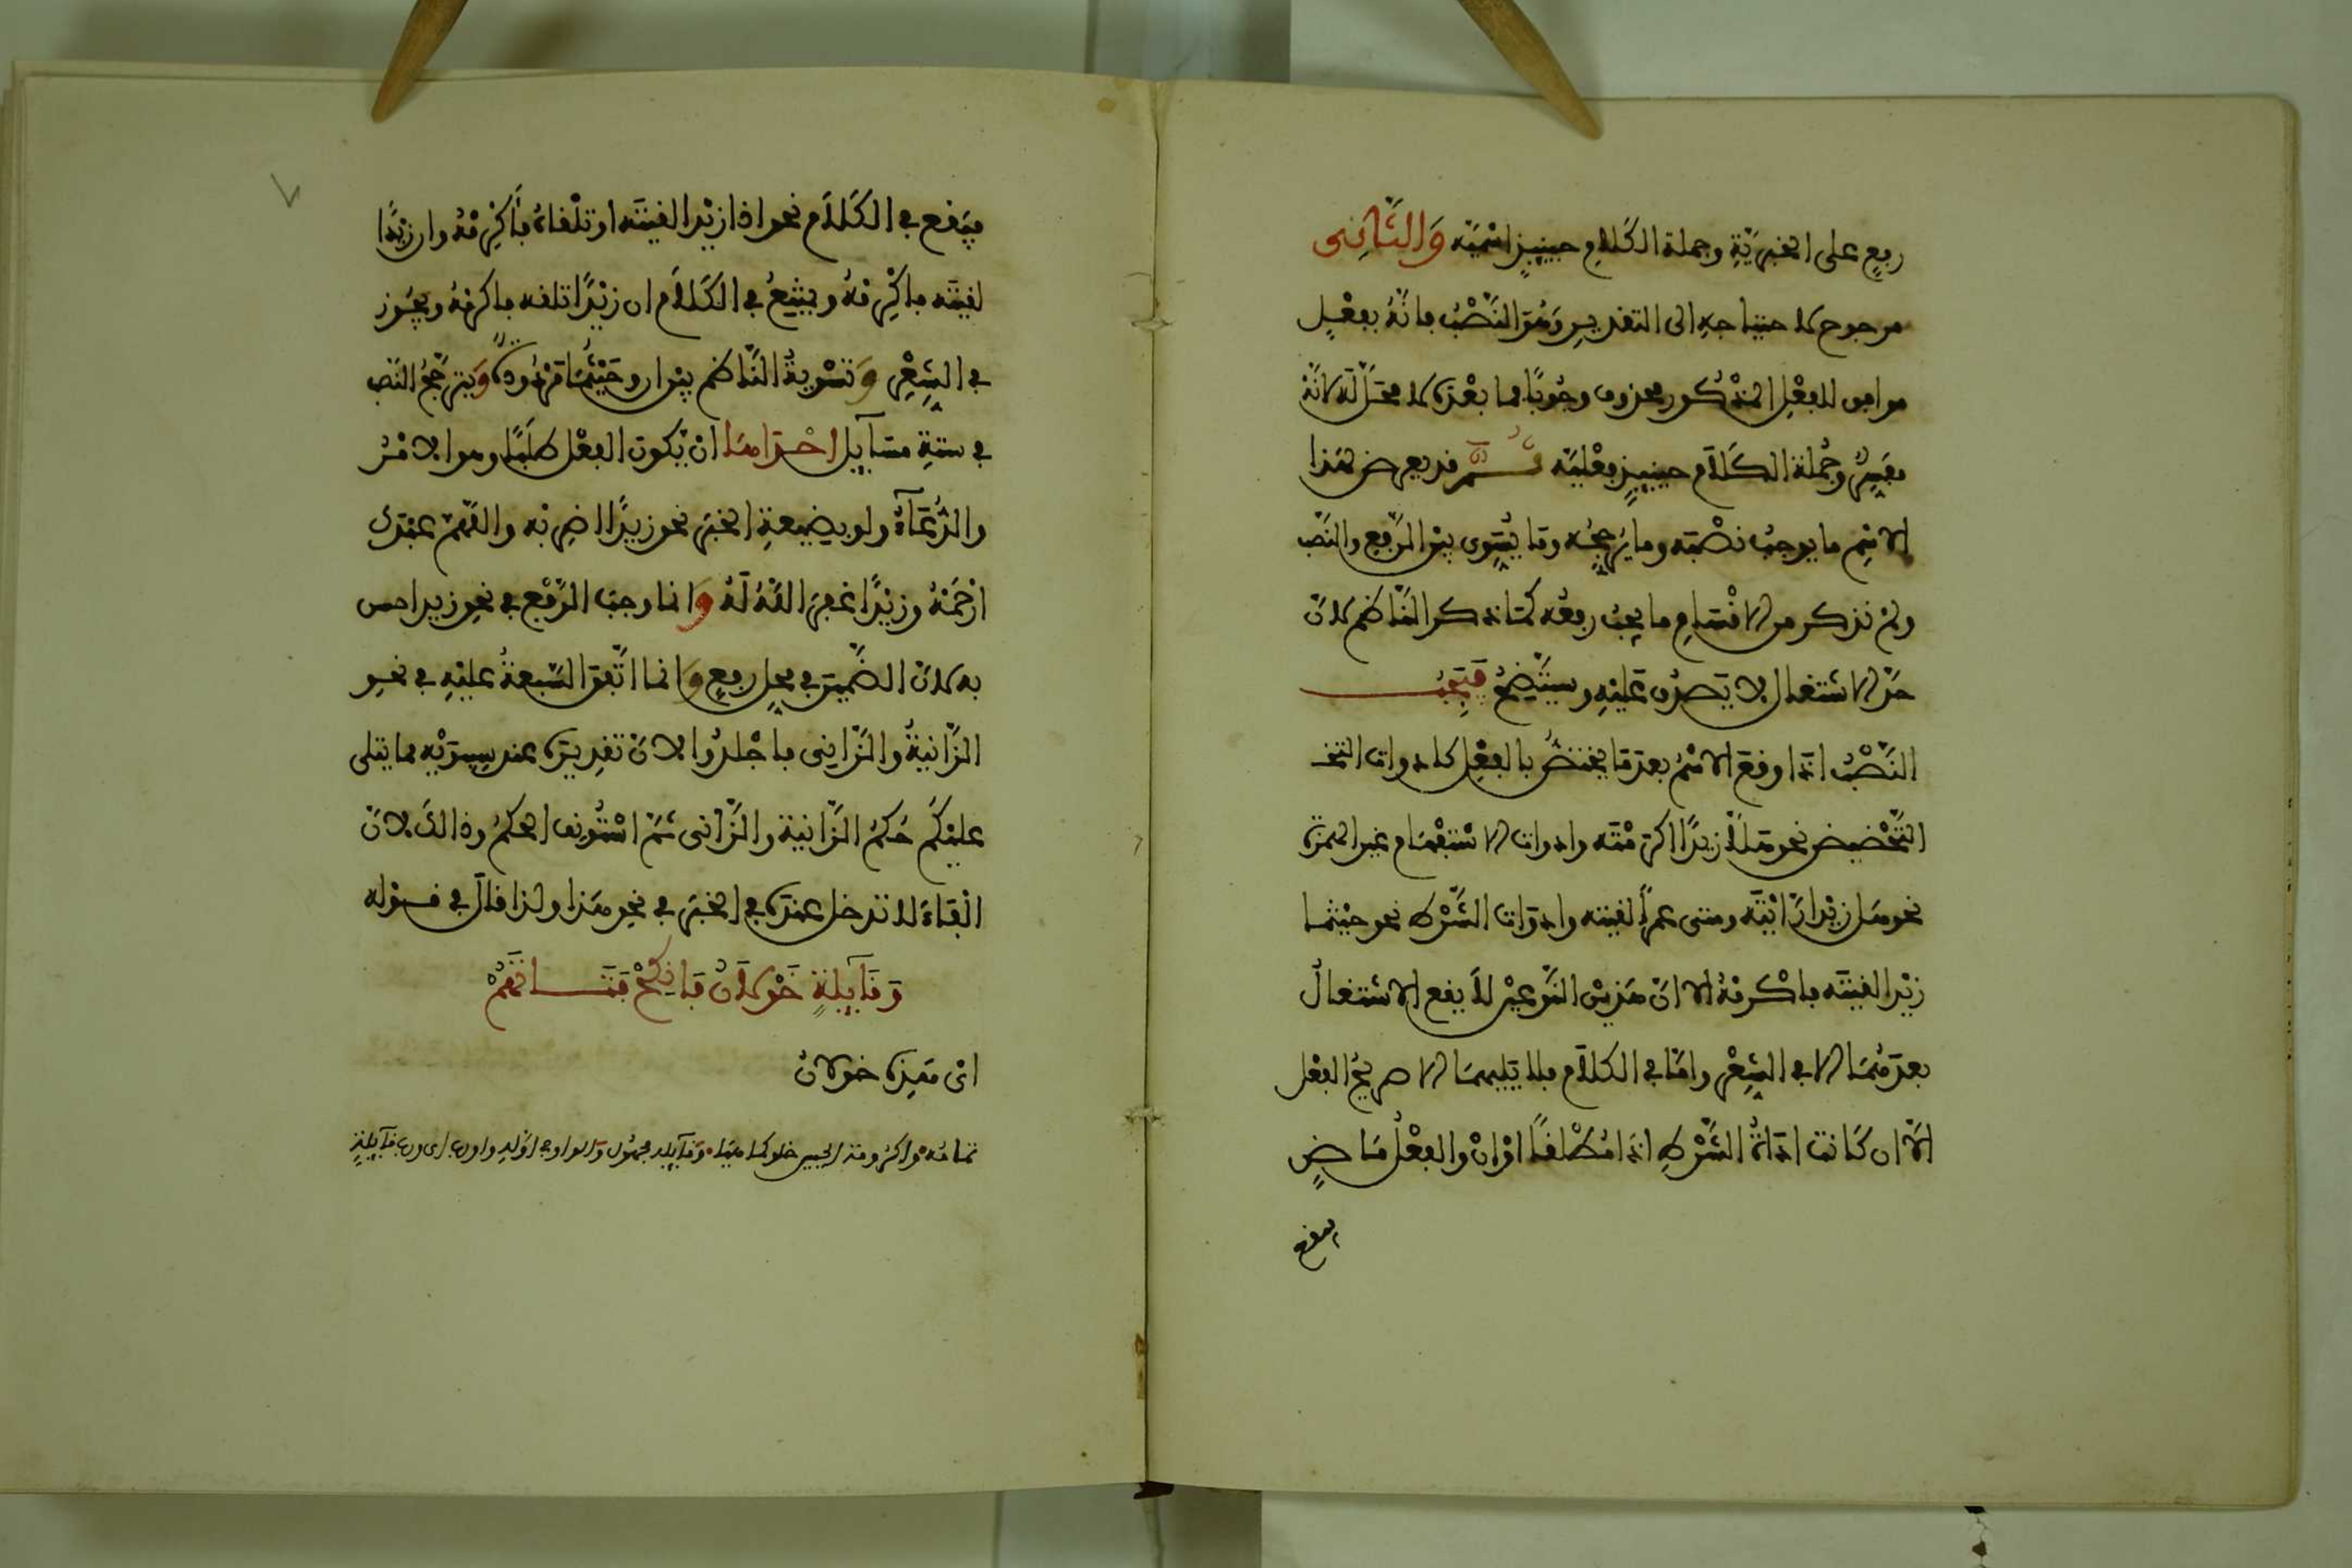 رفع على الخبرية وجملة الكلام حينئذ اسمية وَالثَّانِي
مرجوح لاحتياجه الى التقدير وهو النَّصْبُ فانه بفعل
موافق للفعل المذكور محذوف وجوبًا فما بعده لا محلّ له لانه
مفسر وجُملة الكلام حينئذ فعلية ثم قد يعرض لهذا
الاسم ما يوجب نصْبه وما يرجحه وما يُسَوى بين الرفع والنَّصب
ولم نذكر من الاقسام ما يجب رفعه كما ذكر الناظم لان
حدّ الاشتغال لا يصدُق عليه وسيتّضح فَيَجِبُ
النَّصْبُ اذا وقع الاسْمُ بعد ما يختصّ بالفعل كادوات التحـ
التَّحْضيض نحو هلّا زيدًا اكرمْته وادوات الاسْتفهام غير الهمزة
نحو هل زيْدا رَايْته ومتى عمرًا لقيته وادوات الشّرط نحو حيْثما
زيْدا لقيته فاكرمْهُ الا انّ هذين النّوعيْن لا يقع الاشتغال
بعدهُما الا في الشِّعْر وامّا في الكلام فلا يليهما الا صريحُ الفعْل
الّا ان كانت اداةُ الشّرط اذا مُطْلقًا اوْ انْ والفعْل ماضٍ
فيقع
فيَقع في الكَلام نحو اذا زيْدا لقيته او تلْقاهُ فأكرمْهُ وان زيْدًا
لقيته فاكْرمْهُ ويمتنِعُ في الكَلام ان زيْدًا تلقه فاكرمْهُ ويجُوز
في الشِّعْر وَتسْويةُ النّاظم بين ان وحَيْثُما مَرْدُودةٌ وَيترجَّحُ النّصب
في ستةِ مسَآيل احْداهَا انْ يّكون الفعْل طلَبًا وهو الامْرُ
والدُّعَآءُ ولو بصيغةِ الخبَر نحو زيدًا اضربْه واللّهمّ عبْدك
ارْحَمْهُ وزيْدًا غفرَ اللّهُ لَهُ وَانما وجب الرَّفْع في نحوِ زيد احسن
به لانّ الضّميرَ في محل رفعٍ وَانما اتّفق السّبعةُ عليْهِ في نحو
الزّانيةُ والزّانِي فاجْلدُوا لانّ تقدِيرَه عند سيبوَيْه مما يتلى
عليْكُم حُكمُ الزّانية والزّانى ثمّ اسْتُونِف الحكمُ وذالك لانّ
الْفَاءَ لا تدخل عندَه في الخبَر في نحوِ هذا ولذا قال في قوله
وَقَآيِلةٍ خَوْلَانُ فَانْكِحْ فَتَـاتَهُمْ
انّ هَذِه خولانُ
تمامُهُ واكرُومة الحيين خلو كما هيا وَقآيلة مجهول والواو في اوّله واو رب اى رب قآيلةٍ